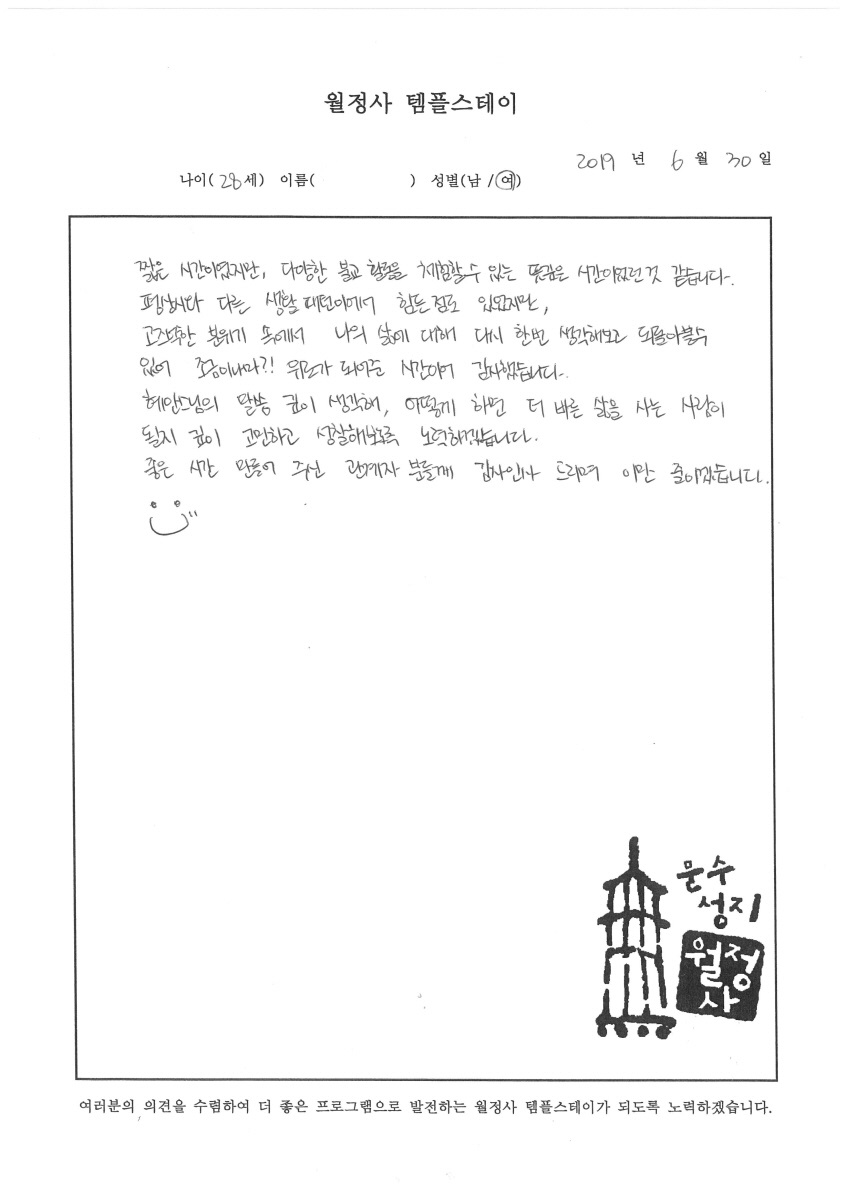 월정사 템플스테이
2019 년 6 월 30 일
나이( 28 세) 이름( ) 성별(남 / 여)
짧은 시간이였지만, 다양한 불교 활동을 체험할 수 있는 뜻깊은 시간이였던 것 같습니다.
평상시와 다른 생활 패턴이여서 힘든 점도 있었지만,
고즈넉한 분위기 속에서 나의 삶에 대해 다시 한번 생각해보고 되돌아볼수
있어 조금이나마?! 위로가 되어준 시간이여 감사했습니다.
혜안스님의 말씀 깊이 생각해, 어떻게 하면 더 바른 삶을 사는 사람이
될지 깊이 고민하고 성찰해보도록 노력하겠습니다.
좋은 시간 만들어 주신 관계자 분들께 감사인사 드리며 이만 줄이겠습니다.
문수
성지
월정
사
여러분의 의견을 수렴하여 더 좋은 프로그램으로 발전하는 월정사 템플스테이가 되도록 노력하겠습니다.